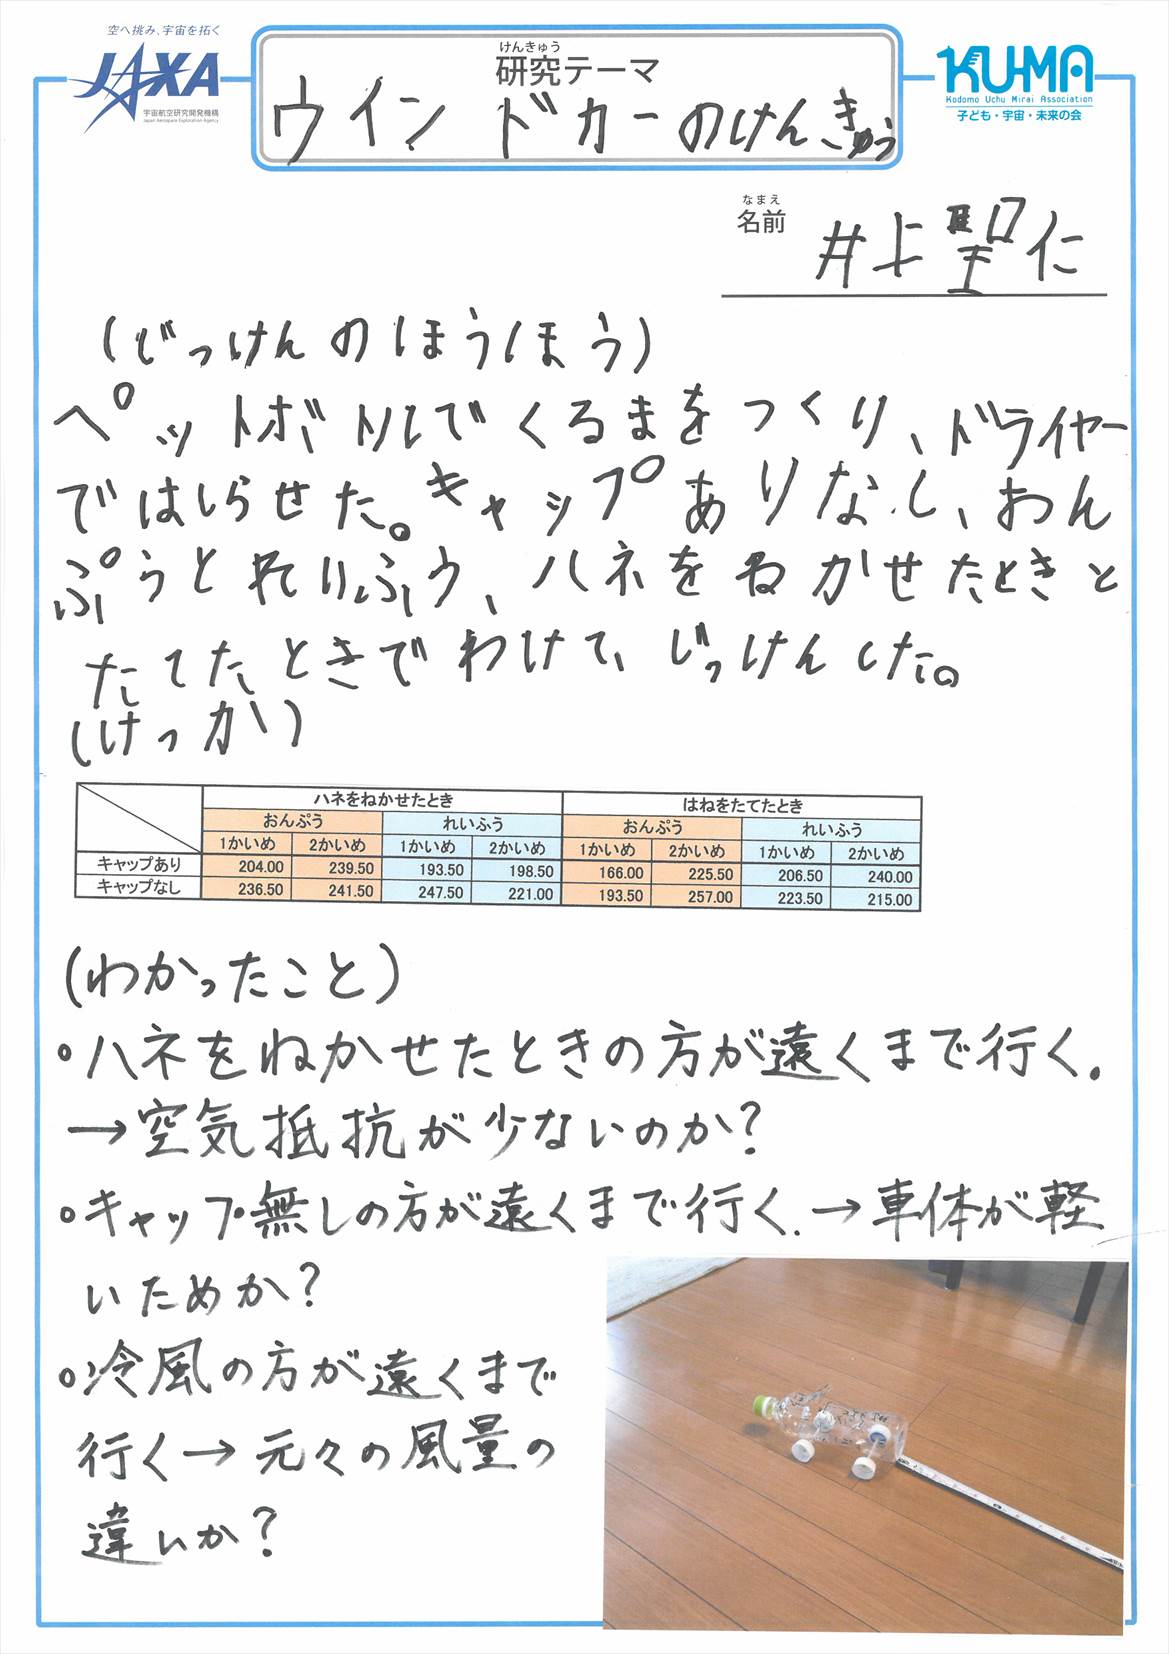 空へ挑み、宇宙を拓く
JAXA
宇宙航空研究開発機構
Japan Aerospace Exploration Agency
けんきゅう
研究テーマ
ウインドカーのけんきゅう
KU-MA
Kodomo Uchu Mirai Association
子ども・宇宙・未来の会
なまえ
名前
井上聖仁
(じっけんのほうほう)
ペットボトルでくるまをつくり、ドライヤー
ではしらせた。キャップありなし、おん
ぷうとれいふう、ハネをねかせたときと
たてたときでわけて、じっけんした。
(けっか)
ハネをねかせたとき はねをたてたとき
おんぷう れいふう おんぷう れいふう
1かいめ 2かいめ 1かいめ 2かいめ 1かいめ 2かいめ 1かいめ 2かいめ
キャップあり 204.00 239.50 193.50 198.50 166.00 225.50 206.50 240.00
キャップなし 236.50 241.50 247.50 221.00 193.50 257.00 223.50 215.00
(わかったこと)
・ハネをねかせたときの方が遠くまで行く.
→空気抵抗が少ないのか?
・キャップ無しの方が遠くまで行く.→車体が軽
いためか?
・冷風の方が遠くまで
行く→元々の風量の
違いか?